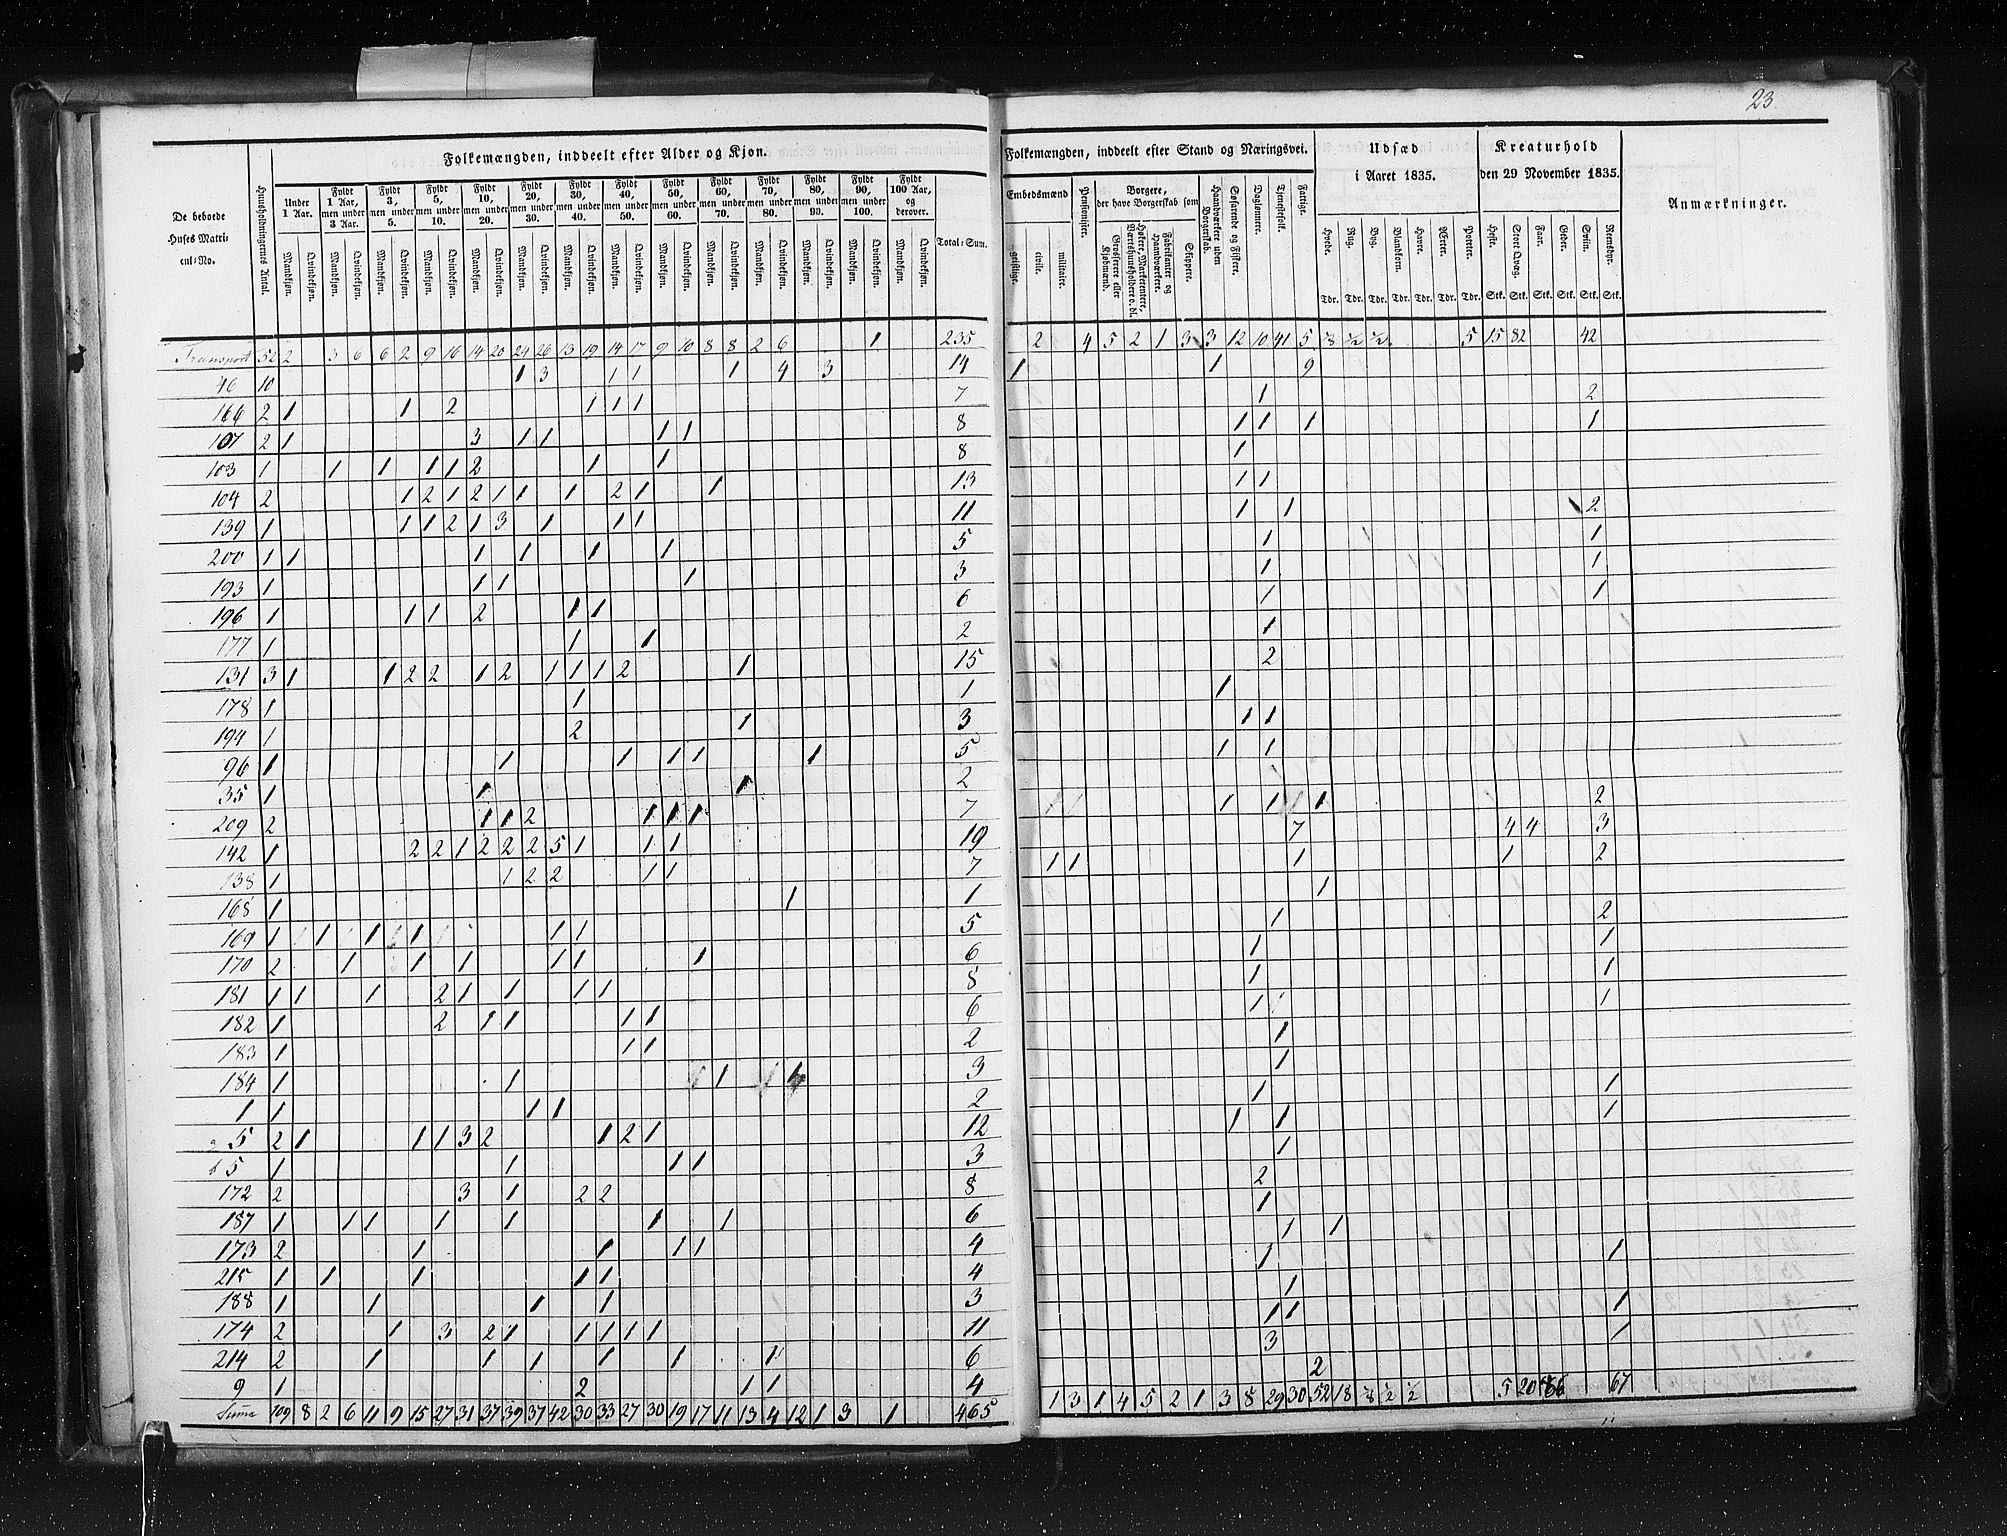 23
Folkemængden, inddeelt efter Alder og Kjøn.
De beboede Huses Matricul-No.
Huusholdningernes Antal.
Under 1 Aar.
Fyldt 1 Aar, men under 3 Aar.
Fyldt 3, men under 5.
Fyldt 5, men under 10.
Fyldt 10, men under 20.
Fyldt 20, men under 30.
Fyldt 30, men under 40.
Fyldt 40, men under 50.
Fyldt 50, men under 60.
Fyldt 60, men under 70.
Fyldt 70, men under 80.
Fyldt 80, men under 90.
Fyldt 90, men under 100.
Fyldt 100 Aar, og derover.
Mandkjøn. Qvindekjøn.
Total-Sum.
Transport 52 2 3 6 6 2 9 16 14 20 24 26 13 19 14 17 9 10 8 8 2 6 1 235
46 10 1 3 1 1 1 4 3 14
166 2 1 1 2 1 1 1 7
107 2 1 3 1 1 1 1 8
103 1 1 1 1 1 2 1 1 8
104 2 1 2 1 2 1 1 1 2 1 1 13
139 1 1 1 2 1 3 1 1 1 11
200 1 1 1 1 1 1 5
193 1 1 1 1 3
196 1 1 1 2 1 1 6
177 1 1 1 2
131 3 1 1 2 2 1 2 1 1 1 2 1 15
178 1 1 1
194 1 2 1 3
96 1 1 1 1 1 1 5
35 1 1 1 2
209 2 1 1 2 1 1 1 7
142 1 2 2 1 2 2 2 5 1 1 1 19
138 1 1 2 2 1 1 7
168 1 1 1
169 1 1 1 1 1 1 5
170 2 1 1 1 1 1 1 6
181 1 1 1 2 1 1 1 1 8
182 1 2 1 1 1 1 6
183 1 1 1 2
184 1 1 1 1 3
1 1 1 1 2
a 5 2 1 1 1 3 2 1 2 1 12
b 5 1 1 1 1 3
172 2 3 1 2 2 8
187 1 1 1 1 1 1 1 6
173 2 1 1 1 1 4
215 1 1 1 1 1 4
188 1 1 1 1 3
174 2 1 3 2 1 1 1 1 1 11
214 2 1 1 1 1 1 1 6
9 1 2 1 1 4
Suma 109 8 2 6 11 9 15 27 31 37 39 37 42 30 33 27 30 19 17 11 13 4 12 1 3 1 465
Folkemængden, inddeelt efter Stand og Næringsvei.
Embedsmænd
geistlige.
civile.
militaire.
Pensionister.
Borgere, der have Borgerskab som
Grosserere eller Kjøbmænd.
Høkere, Marketentere, Værtshuusholdere o. dl.
Fabrikanter og Haandværkere.
Skippere.
Haandværkere uden Borgerskab.
Søfarende og Fiskere.
Daglønnere.
Tjenestefolk.
Fattige.
Udsæd i Aaret 1835.
Hvede. Tdr.
Rug. Tdr.
Byg. Tdr.
Blandkorn. Tdr.
Havre. Tdr.
Ærter. Tdr.
Poteter. Tdr.
Kreaturhold den 29 November 1835.
Heste. Stk.
Stort Qvæg. Stk.
Faar. Stk.
Geder. Stk.
Sviin. Stk.
Rensdyr. Stk.
Anmærkninger.
2 4 5 2 1 3 3 12 10 41 5 ½ ½ 5 15 82 42
1 1 9
1 2
1 1 1 1
1
1 1
1 1 2
1 1
1 1
1 1
1
2
1
1 1
1 1
1 1 1 2
7 4 4 3
1 1 1 1 2
1
1 2
1 1
1 1
1 1
1
1
1 1
1 1 1
1
2
1
1 1
1 1
1
1 1 1
3 1
2
1 3 1 4 5 2 1 3 8 29 30 52 18 ½ ½ 5 20 67